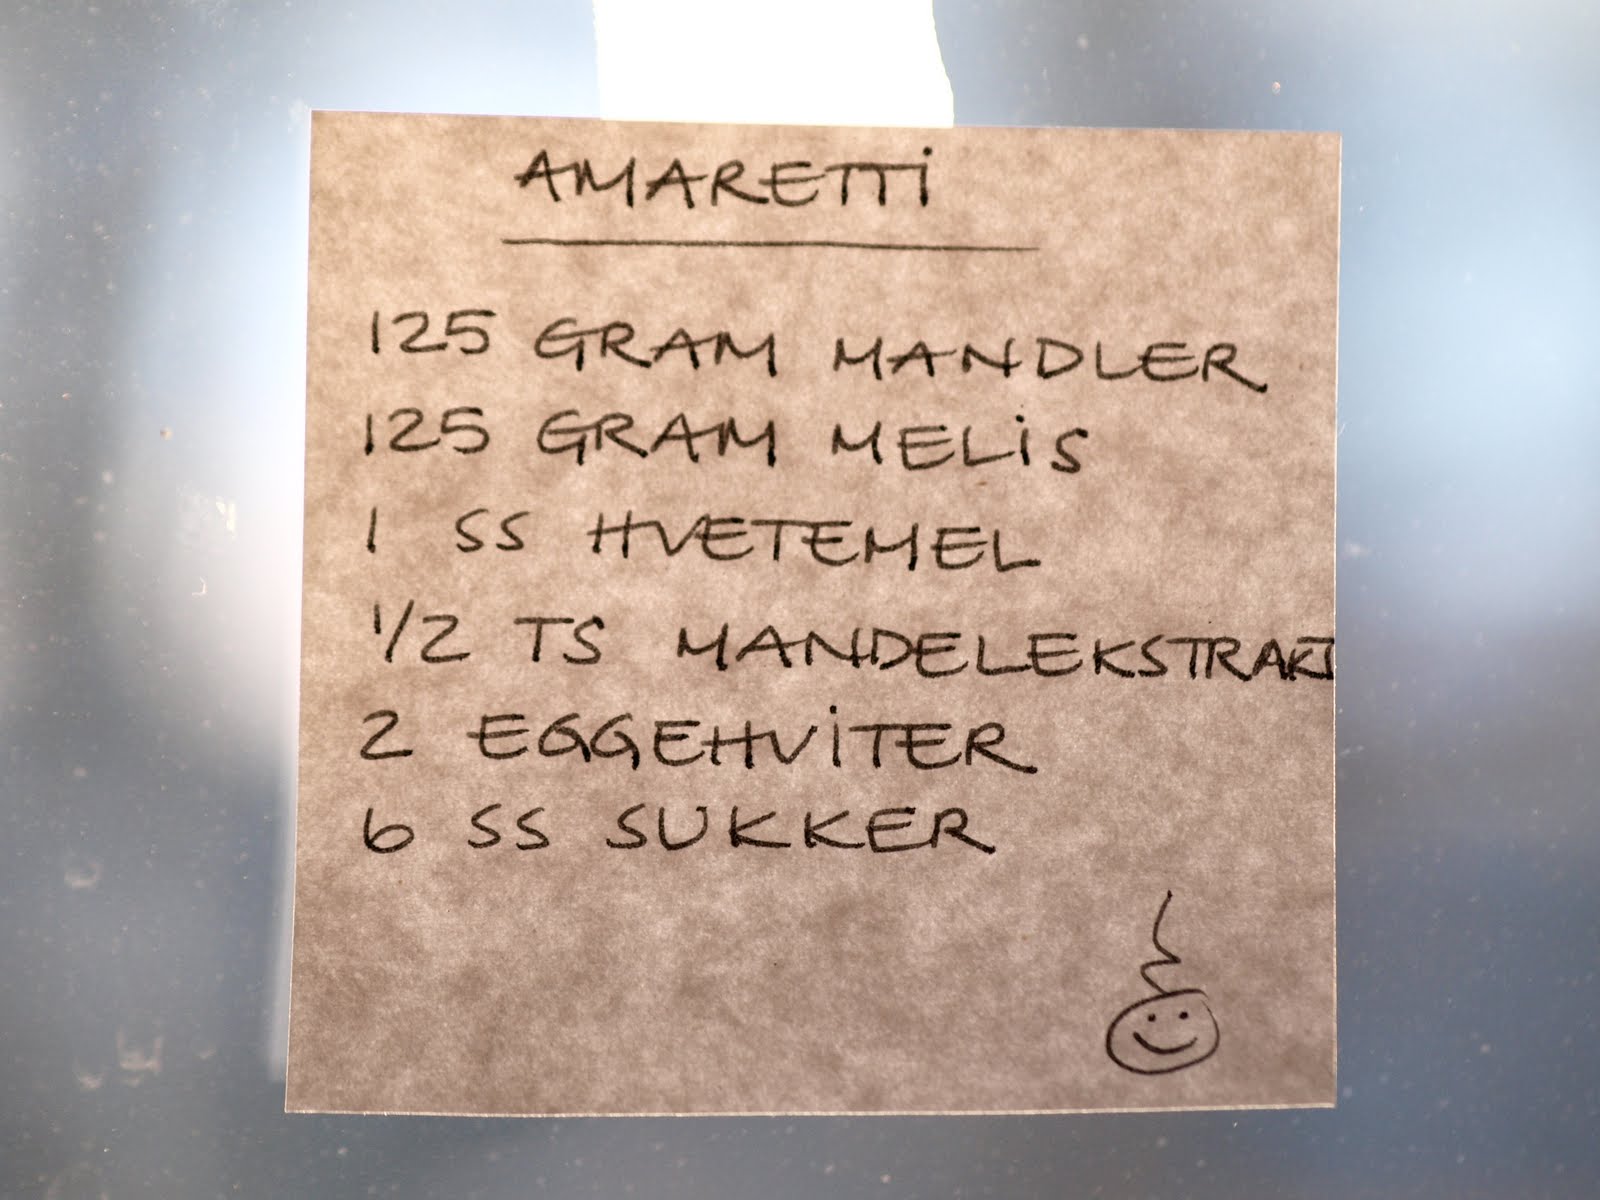 AMARETTi
125 GRAM MANDLER
125 GRAM MELiS
1 SS HVETEMEL
1/2 TS MANDELEKSTRAKT
2 EGGEHViTER
6 SS SUKKER